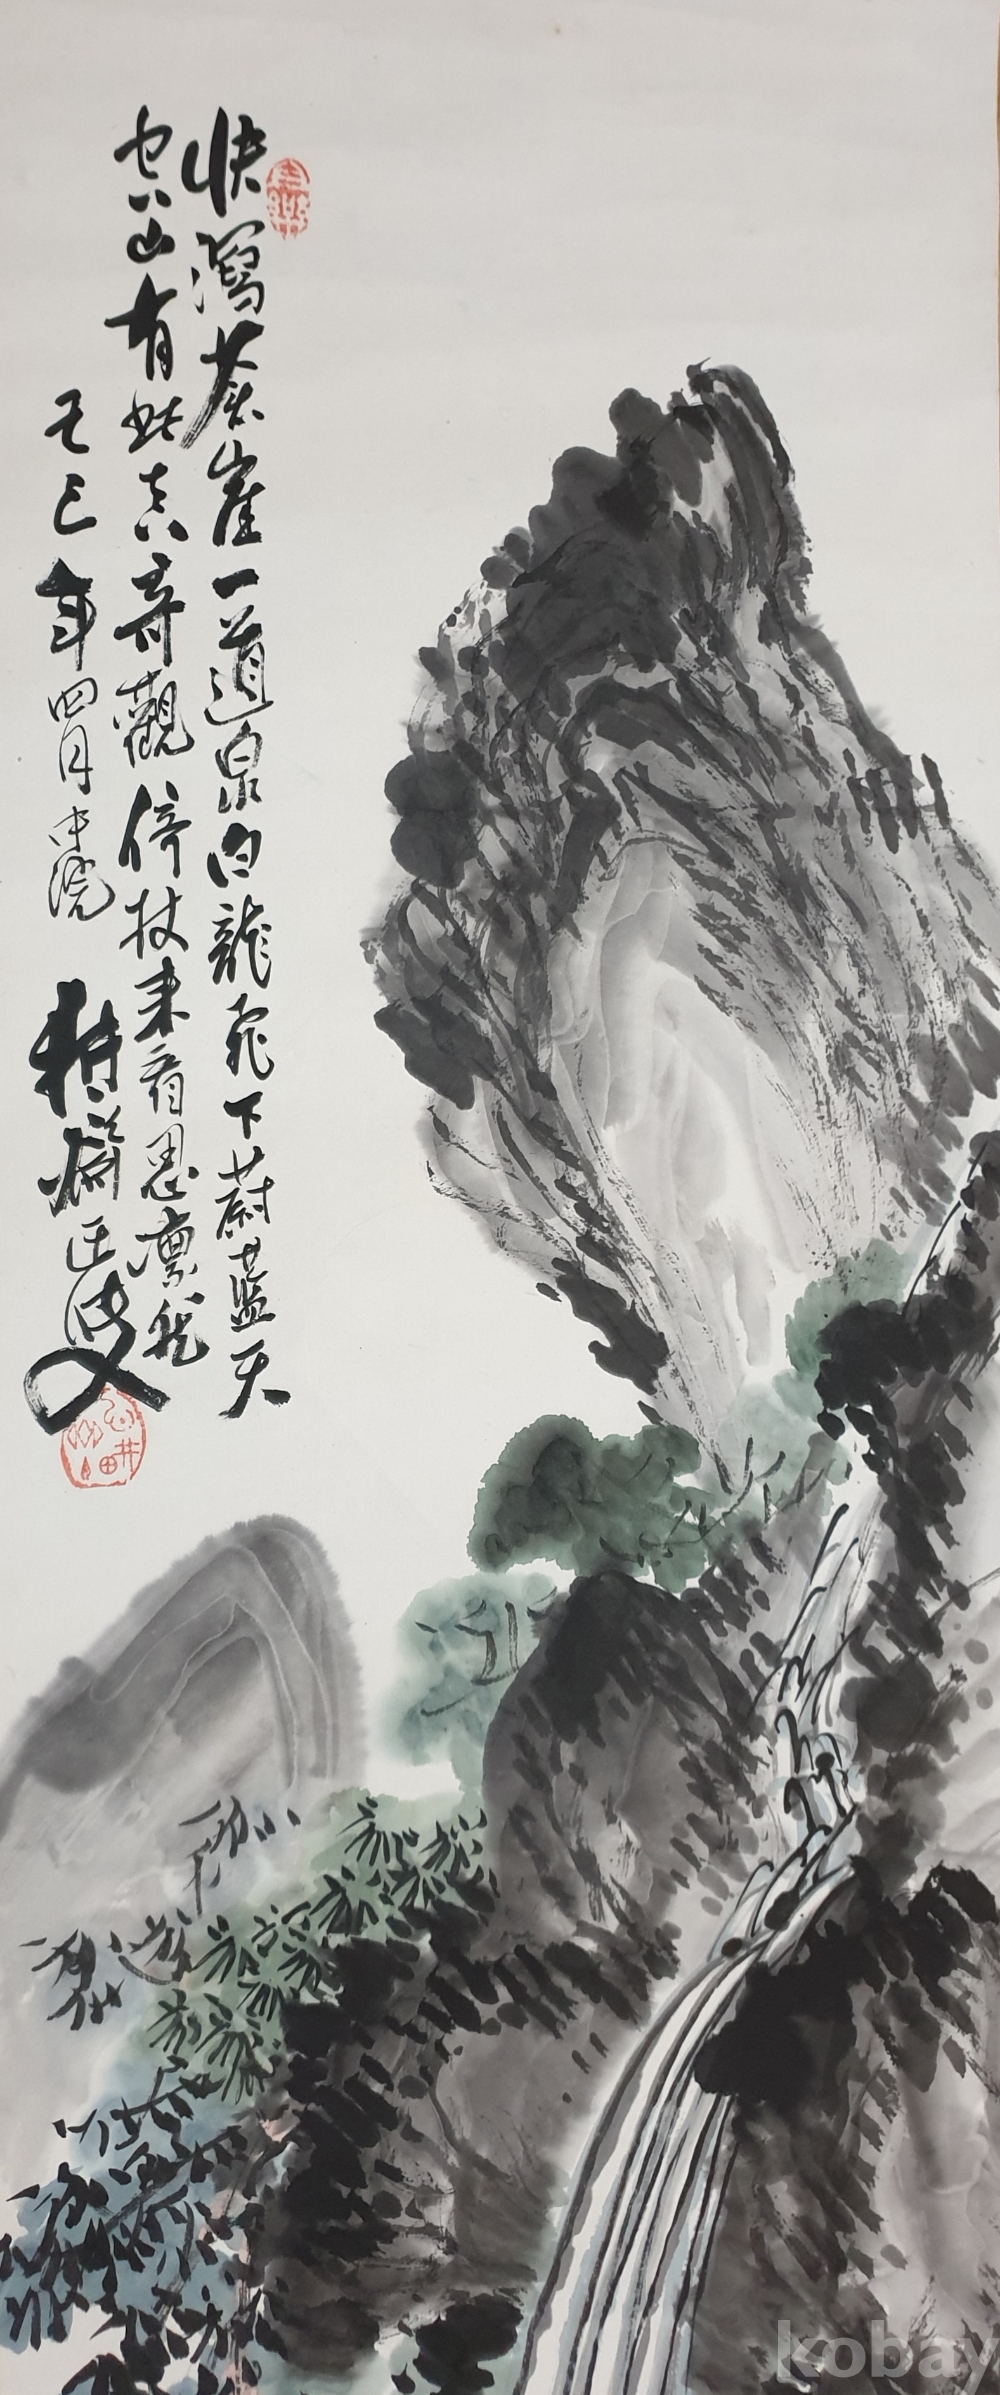 快瀉蒼崖一道泉白龍飛下蔚藍天
空山有此真奇觀倚杖來看思凜然
己巳年四月中浣
耕齋
kobay